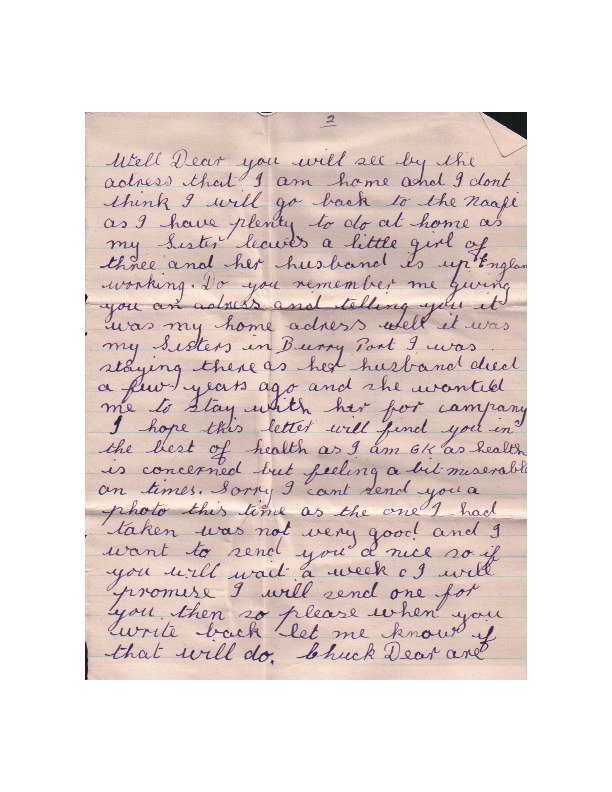 2
Well Dear you will see by the
adress that I am home and I dont
think I will go back to the Naafi
as I have plenty to do at home as
my Sister leaves a little girl of
three and her husband is up Englan
working. Do you remember me giving
you an adress and telling you it
was my home adress well it was
my Sisters in Burry Port I was
staying there as her husband died
a few years ago and she wanted
me to stay with her for company
I hope this letter will find you in
the best of health as I am OK as health
is concerned but feeling a bit miserabl
on times. Sorry I cant send you a
photo this time as the one I had
taken was not very good and I
want to send you a nice so if
you will wait a week I will
promise I will send one for
you then so please when you
write back let me know if
that will do. Chuck Dear are